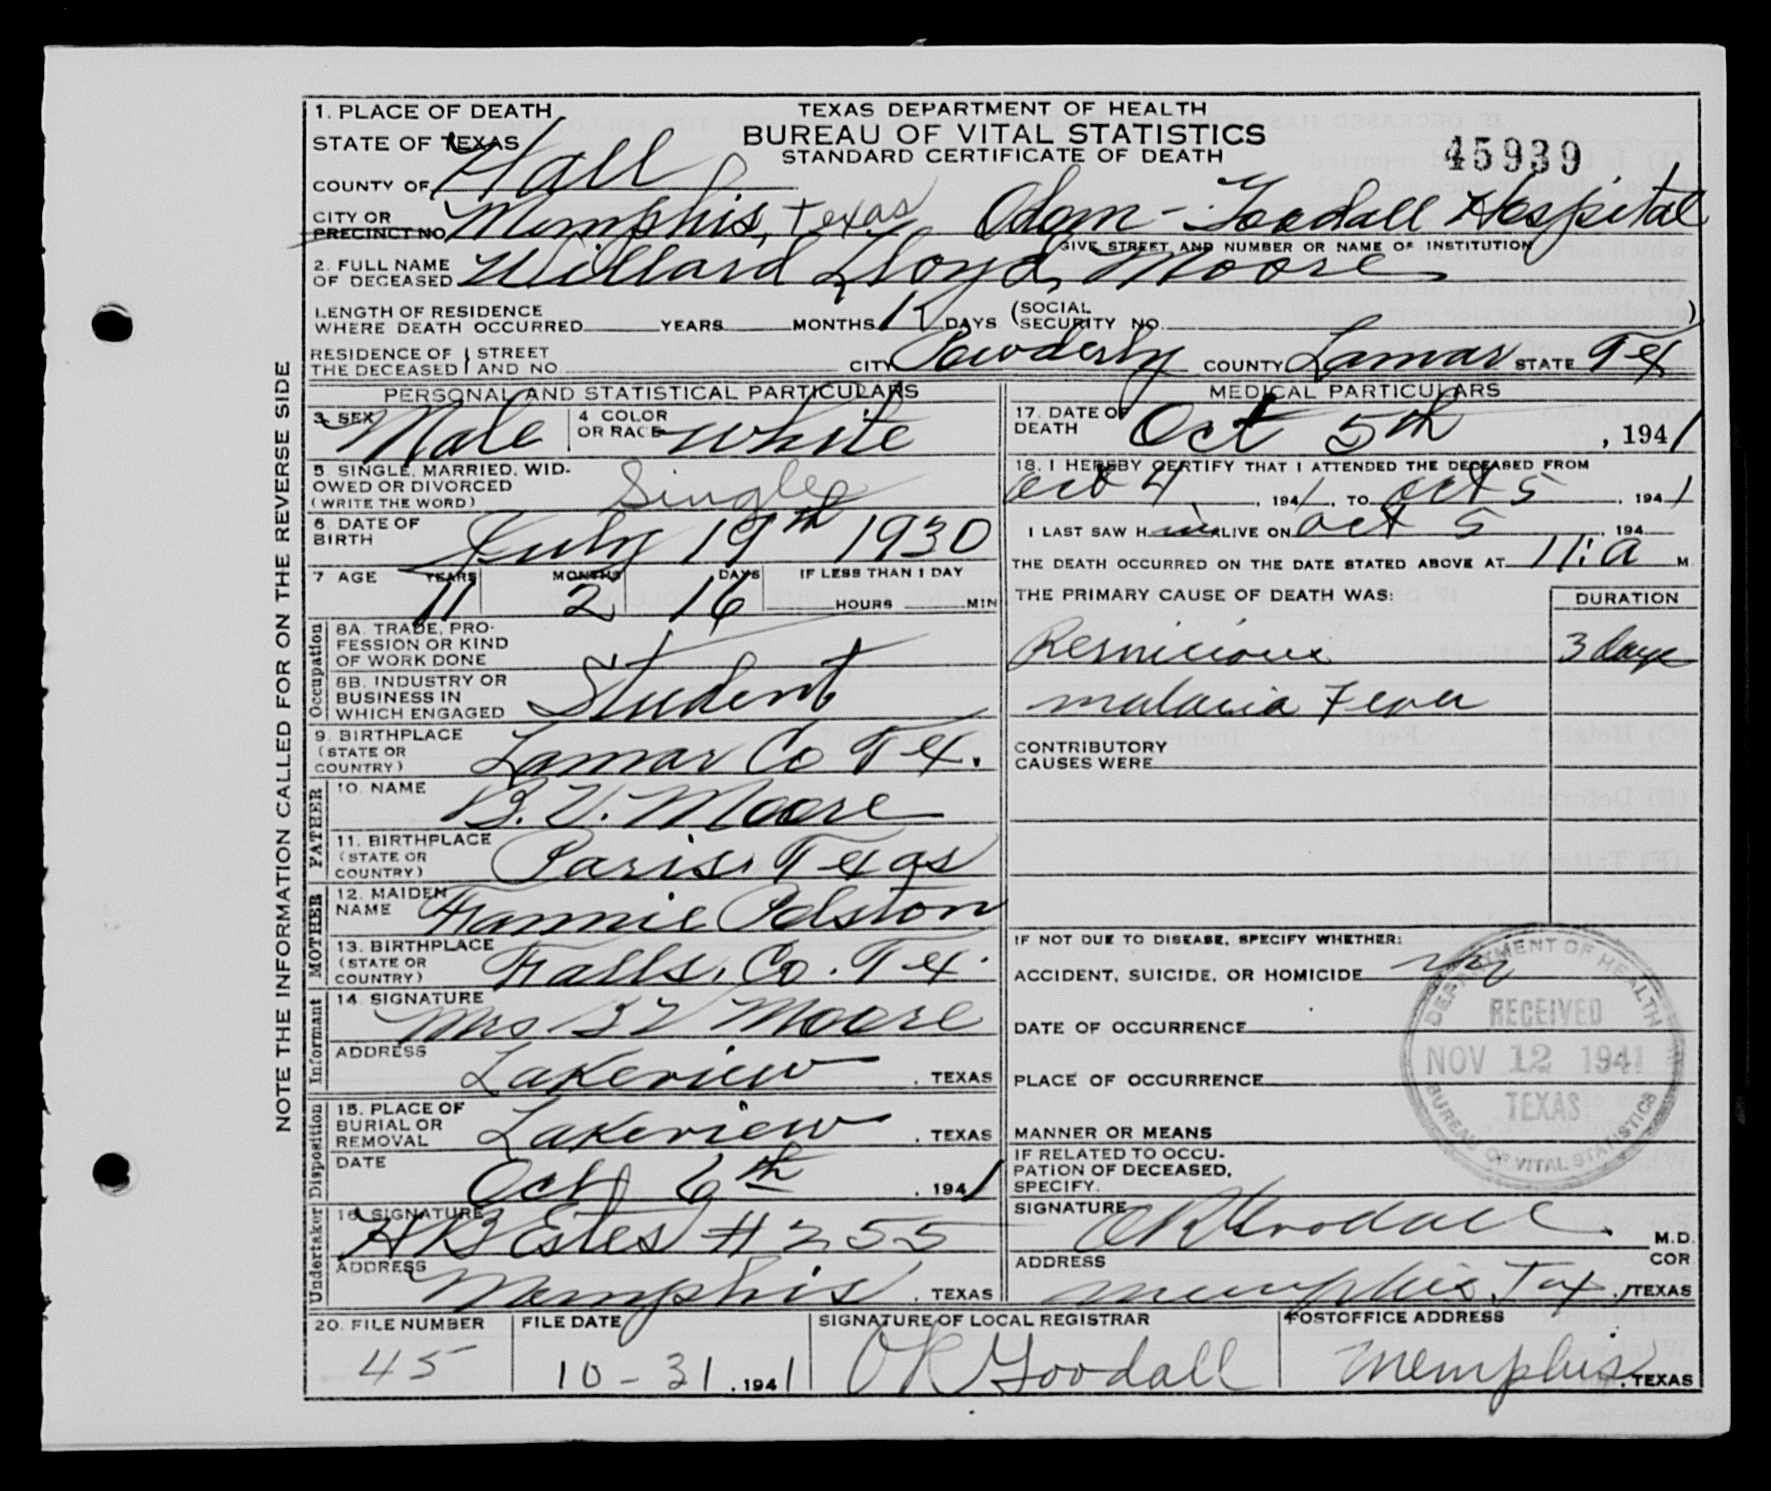 TEXAS DEPARTMENT OF HEALTH
BUREAU OF VITAL STATISTICS
STANDARD CERTIFICATE OF DEATH
45939
1. PLACE OF DEATH
STATE OF TEXAS
COUNTY OF Hall
CITY OR PRECINCT NO. Memphis, Texas Odom-Goodall Hospital
GIVE STREET AND NUMBER OR NAME OF INSTITUTION
2. FULL NAME OF DECEASED Willard Lloyd Moore
LENGTH OF RESIDENCE WHERE DEATH OCCURRED YEARS MONTHS DAYS (SOCIAL SECURITY NO. )
RESIDENCE OF THE DECEASED STREET AND NO. CITY Powderly COUNTY Lamar STATE Tex
PERSONAL AND STATISTICAL PARTICULARS
3. SEX Male 4. COLOR OR RACE White
5. SINGLE, MARRIED, WIDOWED OR DIVORCED (WRITE THE WORD) Single
6. DATE OF BIRTH July 19th 1930
7 AGE YEARS 11 MONTHS 2 DAYS 16 IF LESS THAN 1 DAY HOURS MIN
Occupation
8A. TRADE, PROFESSION OR KIND OF WORK DONE
8B. INDUSTRY OR BUSINESS IN WHICH ENGAGED Student
9. BIRTHPLACE (STATE OR COUNTRY) Lamar Co Tex.
FATHER
10. NAME B. V. Moore
11. BIRTHPLACE (STATE OR COUNTRY) Paris, Texas
MOTHER
12. MAIDEN NAME Fannie
13. BIRTHPLACE (STATE OR COUNTRY) Falls, Co. Tex.
Informant
14. SIGNATURE Mrs B V Moore
ADDRESS Lakeview, TEXAS
Disposition
15. PLACE OF BURIAL OR REMOVAL Lakeview, TEXAS
DATE Oct 6th, 1941
Undertaker
16. SIGNATURE H B Estes #255
ADDRESS Memphis, TEXAS
MEDICAL PARTICULARS
17. DATE OF DEATH Oct 5th, 1941
18. I HEREBY CERTIFY THAT I ATTENDED THE DECEASED FROM
Oct 4, 1941, TO Oct 5, 1941
I LAST SAW H im ALIVE ON Oct 5, 194
THE DEATH OCCURRED ON THE DATE STATED ABOVE AT 11:a M.
THE PRIMARY CAUSE OF DEATH WAS: DURATION
Pernicious 3 days
malaria Fever
CONTRIBUTORY CAUSES WERE
IF NOT DUE TO DISEASE, SPECIFY WHETHER:
ACCIDENT, SUICIDE, OR HOMICIDE
DATE OF OCCURRENCE
PLACE OF OCCURRENCE
MANNER OR MEANS
IF RELATED TO OCCUPATION OF DECEASED, SPECIFY.
SIGNATURE O R Goodall M.D.
COR
ADDRESS Memphis, Tex, TEXAS
DEPARTMENT OF HEALTH
RECEIVED
NOV 12 1941
TEXAS
BUREAU OF VITAL STATISTICS
20. FILE NUMBER 45
FILE DATE 10-31, 1941
SIGNATURE OF LOCAL REGISTRAR O R Goodall
POSTOFFICE ADDRESS Memphis, TEXAS
NOTE THE INFORMATION CALLED FOR ON THE REVERSE SIDE